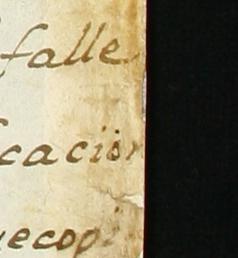 falle
cación
uecopi